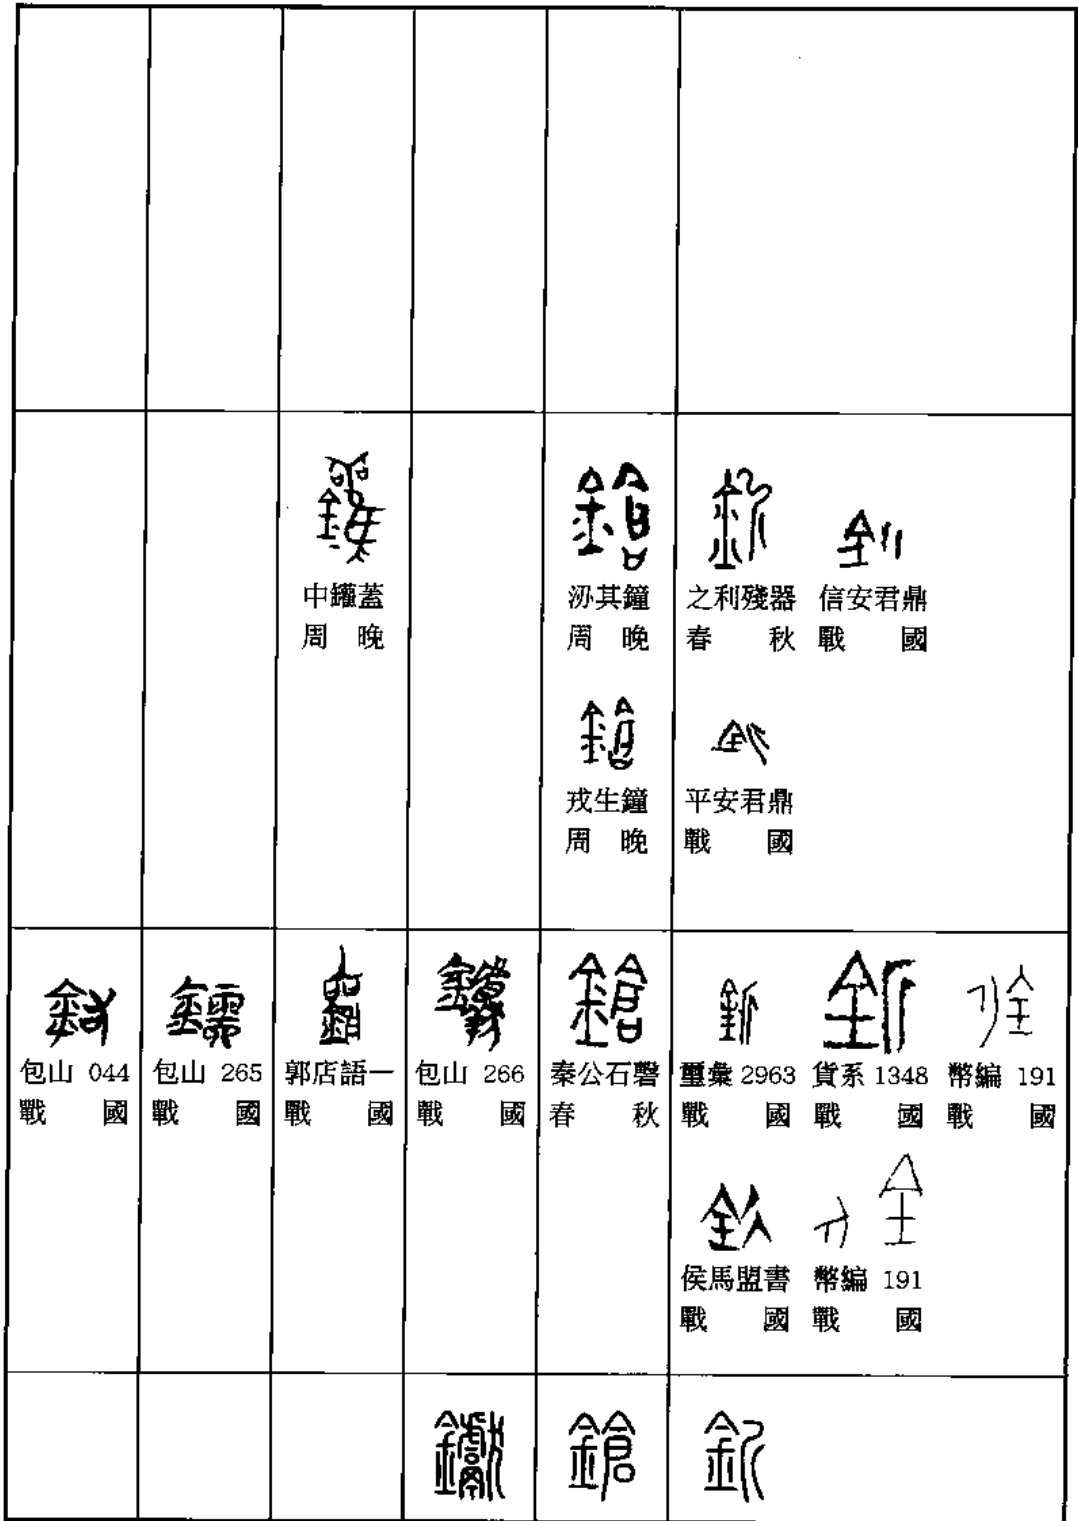 中鑵蓋
周 晚
汈其鐘
周 晚
之利殘器
春 秋
信安君鼎
戰 國
戎生鐘
周 晚
平安君鼎
戰 國
包山 044
戰 國
包山 265
戰 國
郭店語一
戰 國
包山 266
戰 國
秦公石磬
春 秋
璽彙 2963
戰 國
貨系 1348
戰 國
幣編 191
戰 國
侯馬盟書
戰 國
幣編 191
戰 國